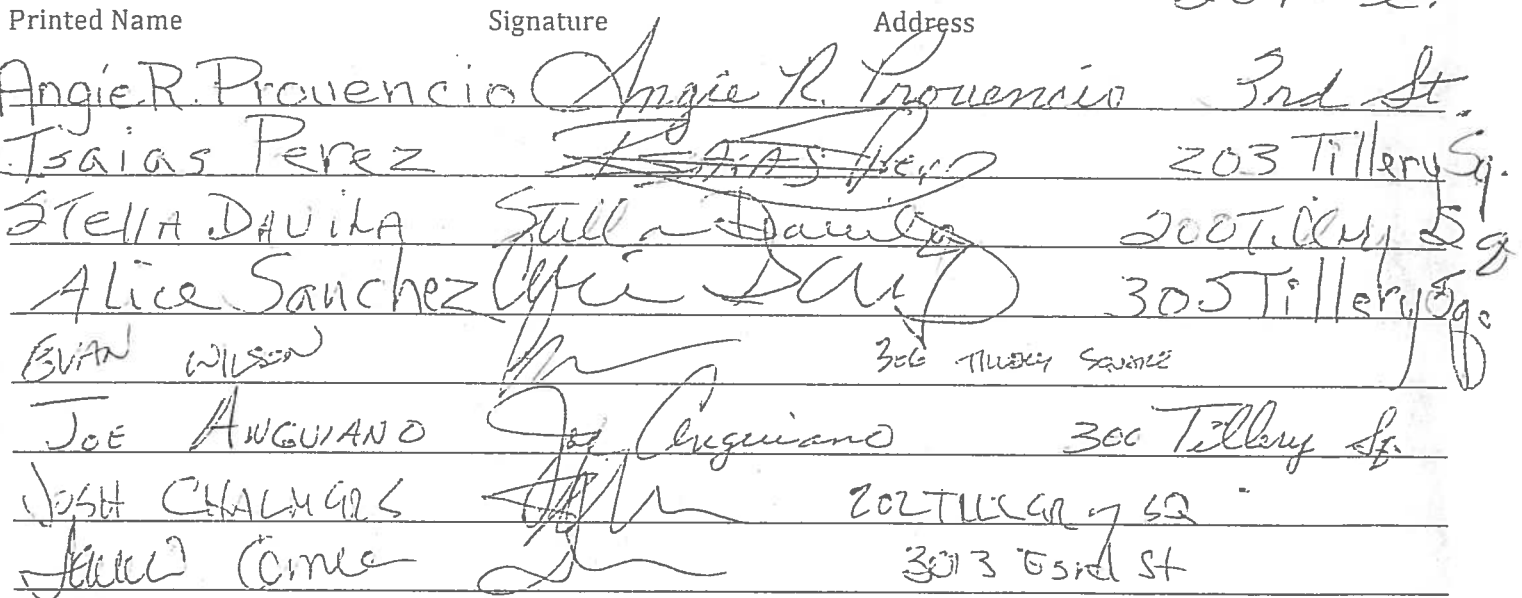 Printed Name Signature Address
Angie R. Provencio Angie R. Provencio 3rd St.
Isaias Perez Isaias Perez 203 Tillery Sq.
STellA DAViLA Stella Davila 200 Tillery Sq
ALice Sanchez 305 Tillery Sq.
EVAN WILSON 306 TILLERY SQUARE
JOE ANGUIANO Joe Anguiano 300 Tillery Sq.
JOSH CHALMERS 202 TILLERY SQ
3013 E 3rd St